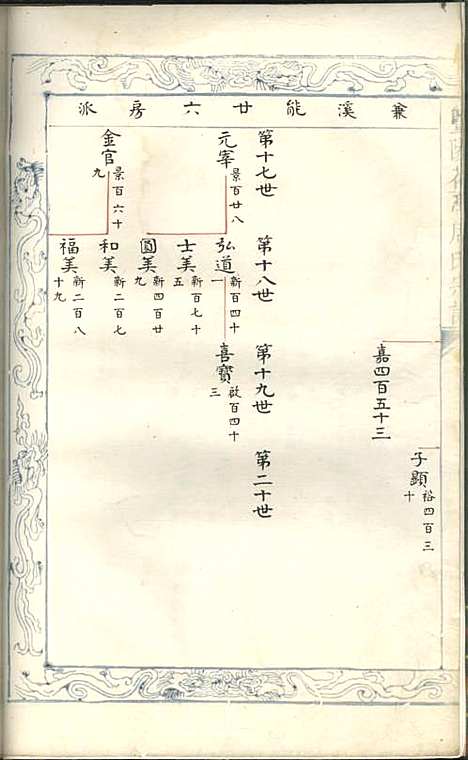 兼溪能廿六房派
嘉四百五十三
子顯 裕四百三十
第十七世
第十八世
第十九世
第二十世
元宰 景百廿八
弘道 新百四十一
喜寶 啟百四十三
士美 新百七十五
圓美 新四百廿九
金官 景百六十九
和美 新二百七
福美 新二百八十九